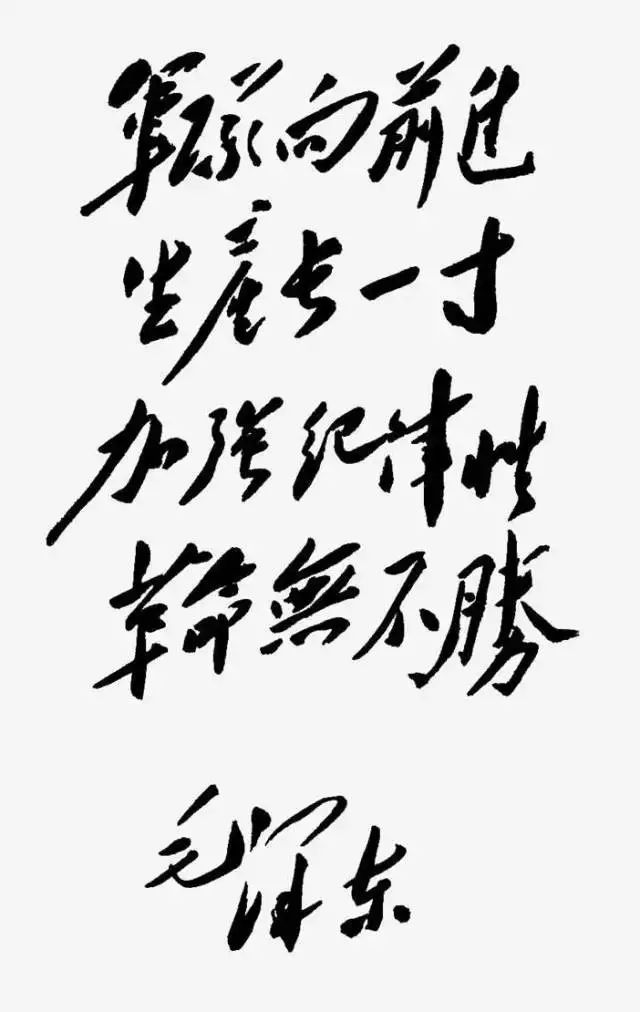 軍隊向前進
生產长一寸
加强纪律性
革命無不勝
毛泽东